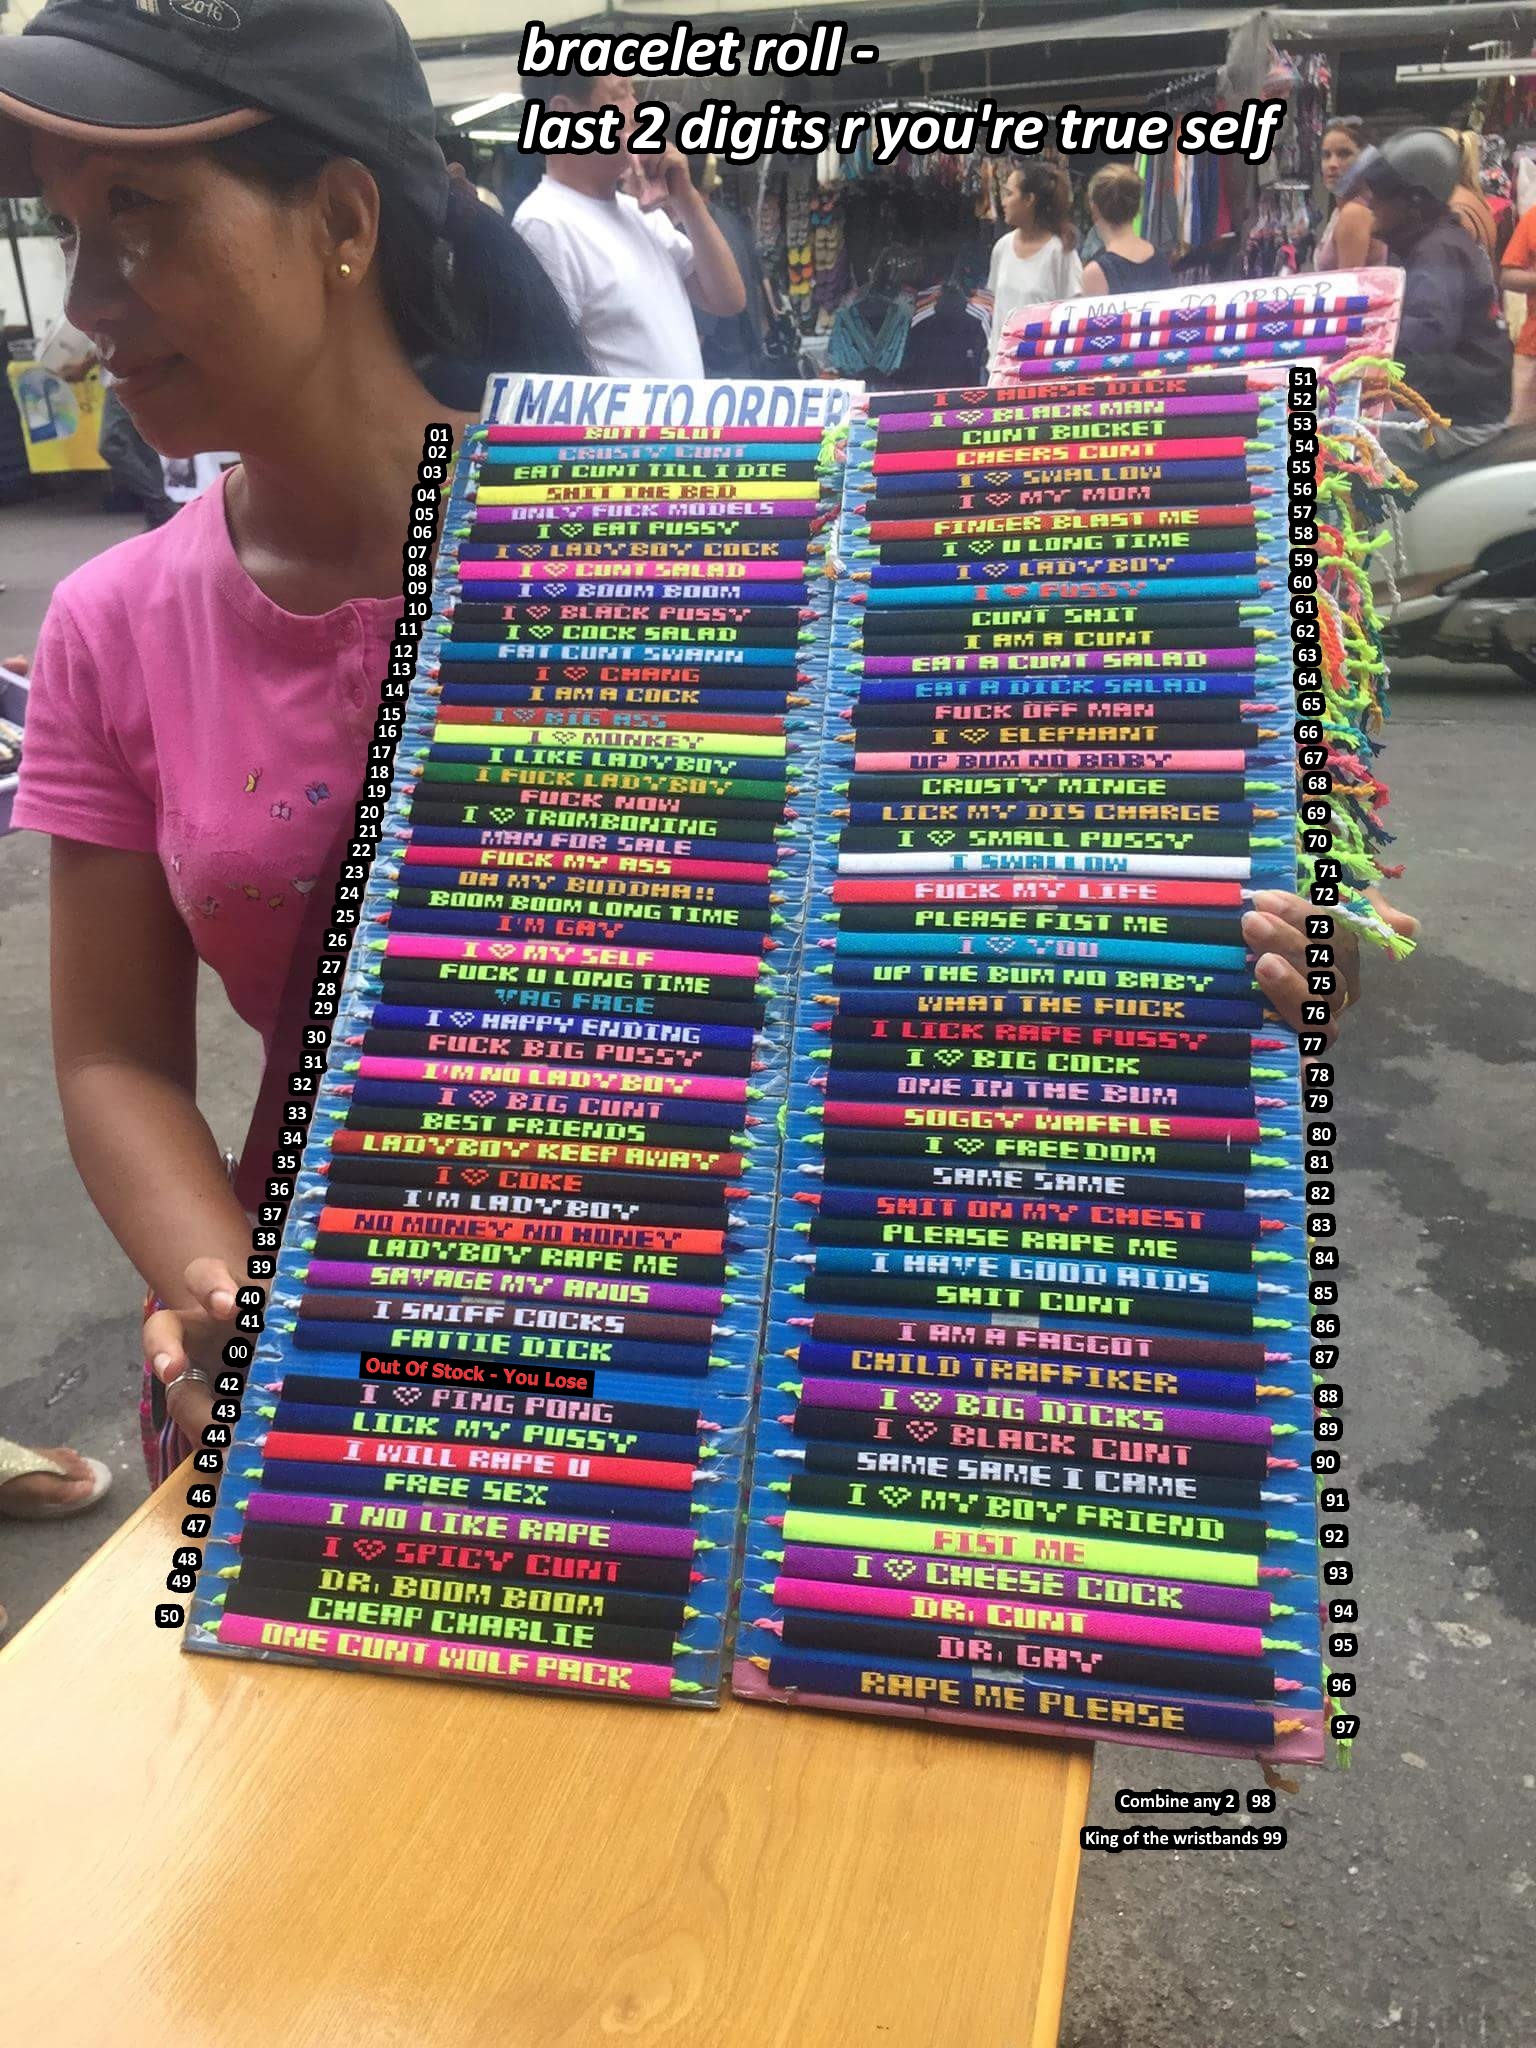 2016
bracelet roll -
last 2 digits r you're true self
I MAKE TO ORDER
I MAKE TO ORDER
01 BUTT SLUT
02 CRUSTY CUNT
03 EAT CUNT TILL I DIE
04 SHIT THE BED
05 ONLY FUCK MODELS
06 I ♡ EAT PUSSY
07 I ♡ LADYBOY COCK
08 I ♡ CUNT SALAD
09 I ♡ BOOM BOOM
10 I ♡ BLACK PUSSY
11 I ♡ COCK SALAD
12 FAT CUNT SWANN
13 I ♡ CHANG
14 I AM A COCK
15 I ♡ BIG ASS
16 I ♡ MONKEY
17 I LIKE LADYBOY
18 I FUCK LADYBOY
19 FUCK NOW
20 I ♡ TROMBONING
21 MAN FOR SALE
22 FUCK MY ASS
23 OH MY BUDDHA!!
24 BOOM BOOM LONG TIME
25 I'M GAY
26 I ♡ MY SELF
27 FUCK U LONG TIME
28 VAG FACE
29 I ♡ HAPPY ENDING
30 FUCK BIG PUSSY
31 I'M NO LADYBOY
32 I ♡ BIG CUNT
33 BEST FRIENDS
34 LADYBOY KEEP AWAY
35 I ♡ COKE
36 I'M LADYBOY
37 NO MONEY NO HONEY
38 LADYBOY RAPE ME
39 SAVAGE MY ANUS
40 I SNIFF COCKS
41 FATTIE DICK
00 Out Of Stock - You Lose
42 I ♡ PING PONG
43 LICK MY PUSSY
44 I WILL RAPE U
45 FREE SEX
46 I NO LIKE RAPE
47 I ♡ SPICY CUNT
48 DR. BOOM BOOM
49 CHEAP CHARLIE
50 ONE CUNT WOLF PACK
I ♡ HORSE DICK 51
I ♡ BLACK MAN 52
CUNT BUCKET 53
CHEERS CUNT 54
I ♡ SWALLOW 55
I ♡ MY MOM 56
FINGER BLAST ME 57
I ♡ U LONG TIME 58
I ♡ LADYBOY 59
I ♥ PUSSY 60
CUNT SHIT 61
I AM A CUNT 62
EAT A CUNT SALAD 63
EAT A DICK SALAD 64
FUCK OFF MAN 65
I ♡ ELEPHANT 66
UP BUM NO BABY 67
CRUSTY MINGE 68
LICK MY DIS CHARGE 69
I ♡ SMALL PUSSY 70
I SWALLOW 71
FUCK MY LIFE 72
PLEASE FIST ME 73
I ♡ YOU 74
UP THE BUM NO BABY 75
WHAT THE FUCK 76
I LICK RAPE PUSSY 77
I ♡ BIG COCK 78
ONE IN THE BUM 79
SOGGY WAFFLE 80
I ♡ FREEDOM 81
SAME SAME 82
SHIT ON MY CHEST 83
PLEASE RAPE ME 84
I HAVE GOOD AIDS 85
SHIT CUNT 86
I AM A FAGGOT 87
CHILD TRAFFIKER 88
I ♡ BIG DICKS 89
I ♡ BLACK CUNT 90
SAME SAME I CAME 91
I ♡ MY BOY FRIEND 92
FIST ME 93
I ♡ CHEESE COCK 94
DR. CUNT 95
DR. GAY 96
RAPE ME PLEASE 97
Combine any 2 98
King of the wristbands 99